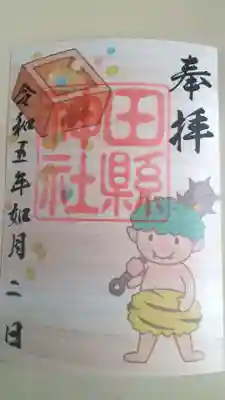 奉拝
田縣
神社
令和五年如月二日